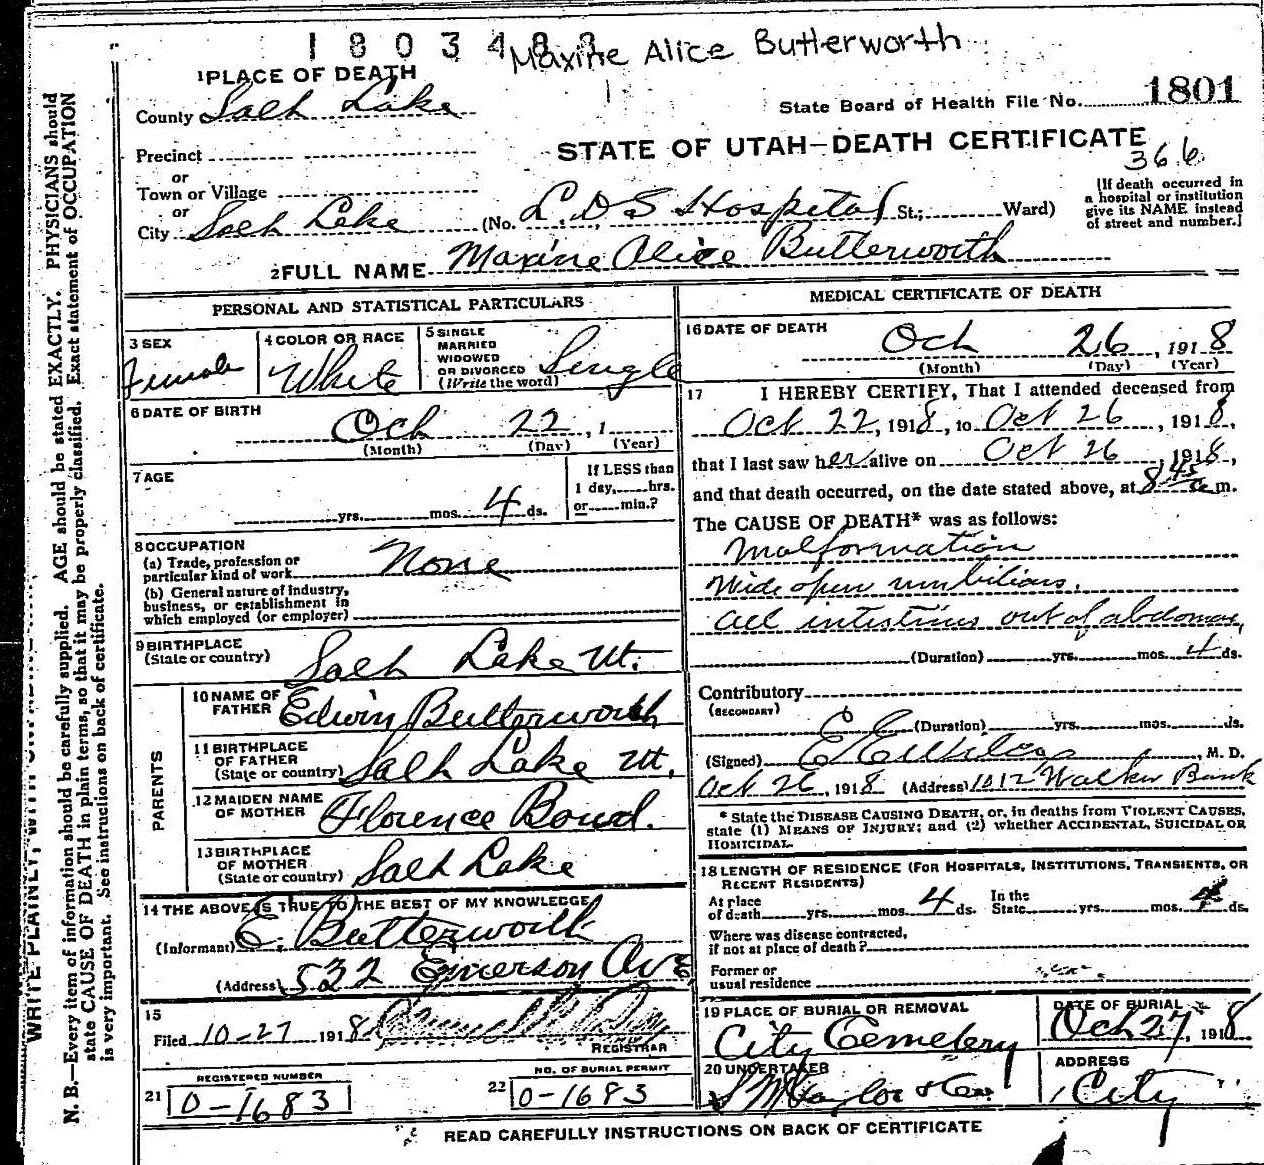 1803488
Maxine Alice Butterworth
1 PLACE OF DEATH
County Salt Lake
State Board of Health File No. 1801
Precinct
or
Town or Village
or
City Salt Lake
STATE OF UTAH—DEATH CERTIFICATE
366
(No. L. D S Hospital St.; Ward)
[If death occurred in a hospital or institution give its NAME instead of street and number.]
2 FULL NAME Maxine Alice Butterworth
PERSONAL AND STATISTICAL PARTICULARS
3 SEX
Female
4 COLOR OR RACE
White
5 SINGLE
MARRIED
WIDOWED
OR DIVORCED
(Write the word)
Single
6 DATE OF BIRTH
Oct 22, 1
(Month) (Day) (Year)
7 AGE
yrs. mos. 4 ds.
If LESS than
1 day, hrs.
or min.?
8 OCCUPATION
(a) Trade, profession or
particular kind of work None
(b) General nature of industry,
business, or establishment in
which employed (or employer)
9 BIRTHPLACE
(State or country) Salt Lake Ut.
PARENTS
10 NAME OF
FATHER Edwin Butterworth
11 BIRTHPLACE
OF FATHER
(State or country) Salt Lake Ut.
12 MAIDEN NAME
OF MOTHER Florence Bowd.
13 BIRTHPLACE
OF MOTHER
(State or country) Salt Lake
14 THE ABOVE IS TRUE TO THE BEST OF MY KNOWLEDGE
(Informant) E. Butterworth
(Address) 532 Emerson Ave
15
Filed 10-27 1918
REGISTRAR
21 REGISTERED NUMBER
0-1683
22 NO. OF BURIAL PERMIT
0-1683
MEDICAL CERTIFICATE OF DEATH
16 DATE OF DEATH
Oct 26, 1918
(Month) (Day) (Year)
17 I HEREBY CERTIFY, That I attended deceased from
Oct 22, 1918, to Oct 26, 1918,
that I last saw her alive on Oct 26, 1918,
and that death occurred, on the date stated above, at 8 45 a m.
The CAUSE OF DEATH* was as follows:
Malformation
Wide open umbilicus.
all intestines out of abdomen,
(Duration) yrs. mos. 4 ds.
Contributory
(SECONDARY)
(Duration) yrs. mos. ds.
(Signed) E E , M. D.
Oct 26, 1918 (Address) 1012 Walker Bank
* State the DISEASE CAUSING DEATH, or, in deaths from VIOLENT CAUSES,
state (1) MEANS OF INJURY; and (2) whether ACCIDENTAL, SUICIDAL OR
HOMICIDAL.
18 LENGTH OF RESIDENCE (FOR HOSPITALS, INSTITUTIONS, TRANSIENTS, OR
RECENT RESIDENTS)
At place
of death yrs. mos. 4 ds.
In the
State yrs. mos. 4 ds.
Where was disease contracted,
if not at place of death?
Former or
usual residence
19 PLACE OF BURIAL OR REMOVAL
City Cemetery
DATE OF BURIAL
Oct 27, 1918
20 UNDERTAKER
S M Taylor & Co
ADDRESS
City
READ CAREFULLY INSTRUCTIONS ON BACK OF CERTIFICATE
WRITE PLAINLY, WITH
N. B.—Every item of information should be carefully supplied. AGE should be stated EXACTLY. PHYSICIANS should
state CAUSE OF DEATH in plain terms, so that it may be properly classified. Exact statement of OCCUPATION
is very important. See instructions on back of certificate.